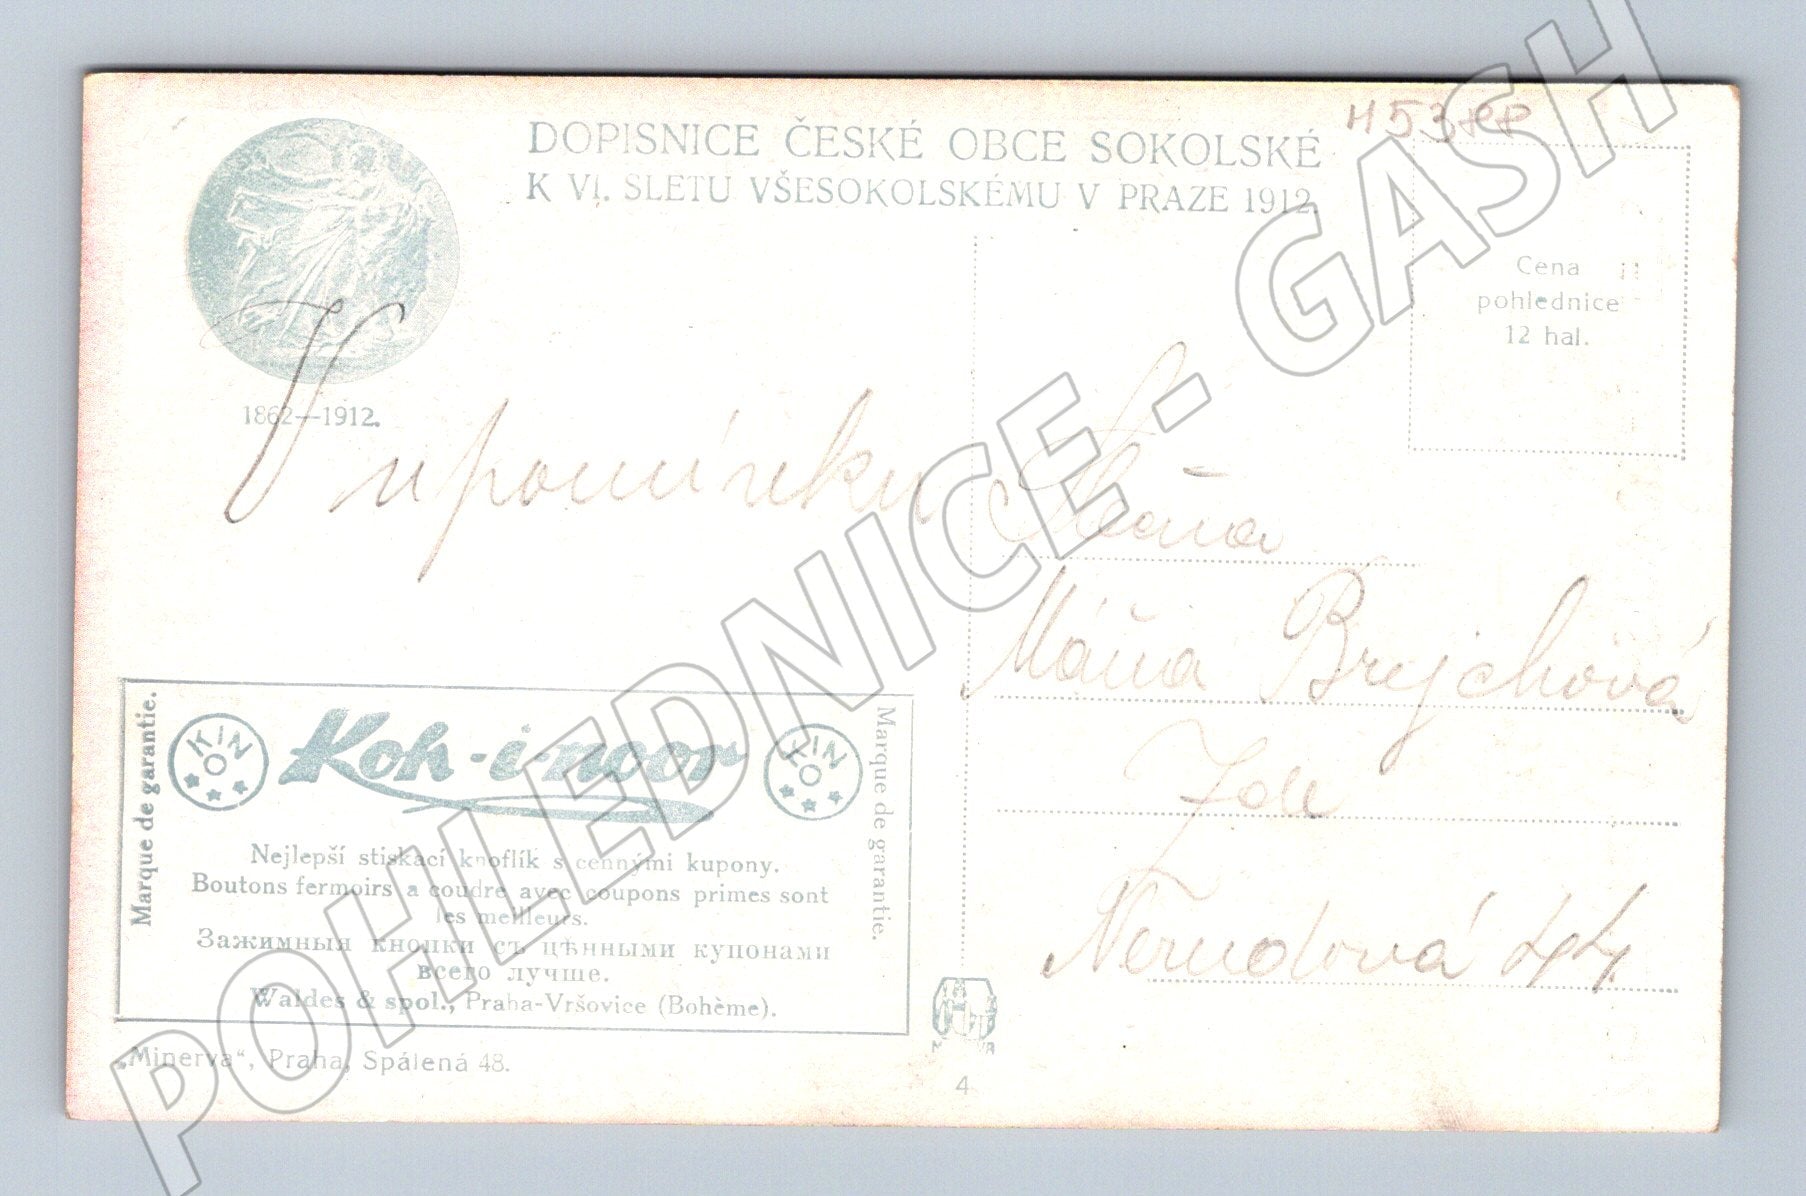 H5388
DOPISNICE ČESKÉ OBCE SOKOLSKÉ
K VI. SLETU VŠESOKOLSKÉMU V PRAZE 1912.
Cena
pohlednice
12 hal.
1862—1912.
V upomínku
Máňa Brejchová
Zde
Nerudová 44
Marque de garantie.
KIN
Koh-i-noor
KIN
Marque de garantie.
Nejlepší stiskací knoflík s cennými kupony.
Boutons fermoirs a coudre avec coupons primes sont
les meilleurs.
Зажимныя кнопки съ цѣнными купонами
всего лучше.
Waldes & spol., Praha-Vršovice (Bohème).
„Minerva“, Praha, Spálená 48.
4
POHLEDNICE - GASH